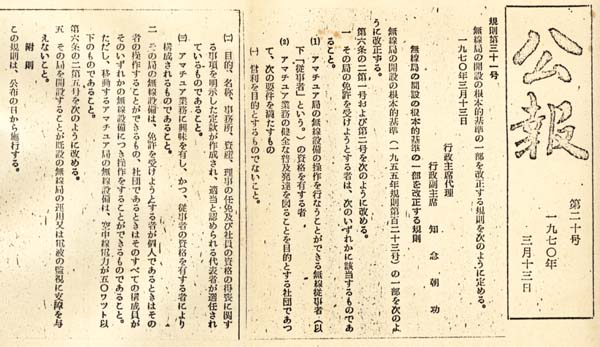 公報
第二十号
一九七〇年
三月十三日
規則第三十一号
無線局の開設の根本的基準の一部を改正する規則を次のように定める。
一九七〇年三月十三日
行政主席代理
行政副主席 知念朝功
無線局の開設の根本的基準の一部を改正する規則
無線局の開設の根本的基準(一九五五年規則第百二十三号)の一部を次のよ
うに改正する。
第六条の二第一号および第二号を次のように改める。
一 その局の免許を受けようとする者は、次のいずれかに該当するものであ
ること。
(1) アマチュア局の無線設備の操作を行なうことができる無線従事者(以
下「従事者」という。)の資格を有する者
(2) アマチュア業務の健全な普及発達を図ることを目的とする社団であつ
て、次の要件を満たすもの
(一) 営利を目的とするものでないこと。
(二) 目的、名称、事務所、資産、理事の任免及び社員の資格の得喪に関す
る事項を明示した定款が作成され、適当と認められる代表者が選任され
ているものであること。
(三) アマチュア業務に興味を有し、かつ、従事者の資格を有する者により
構成されるものであること。
二 その局の無線設備は、免許を受けようとする者が個人であるときはその
者の操作することができるもの、社団であるときはそのすべての構成員が
そのいずれかの無線設備につき操作をすることができるものであること。
ただし、移動するアマチュア局の無線設備は、空中線電力が五〇ワツト以
下のものであること。
第六条の二第五号を次のように改める。
五 その局を開設することが既設の無線局の運用又は電波の監視に支障を与
えないこと。
附則
この規則は、公布の日から施行する。